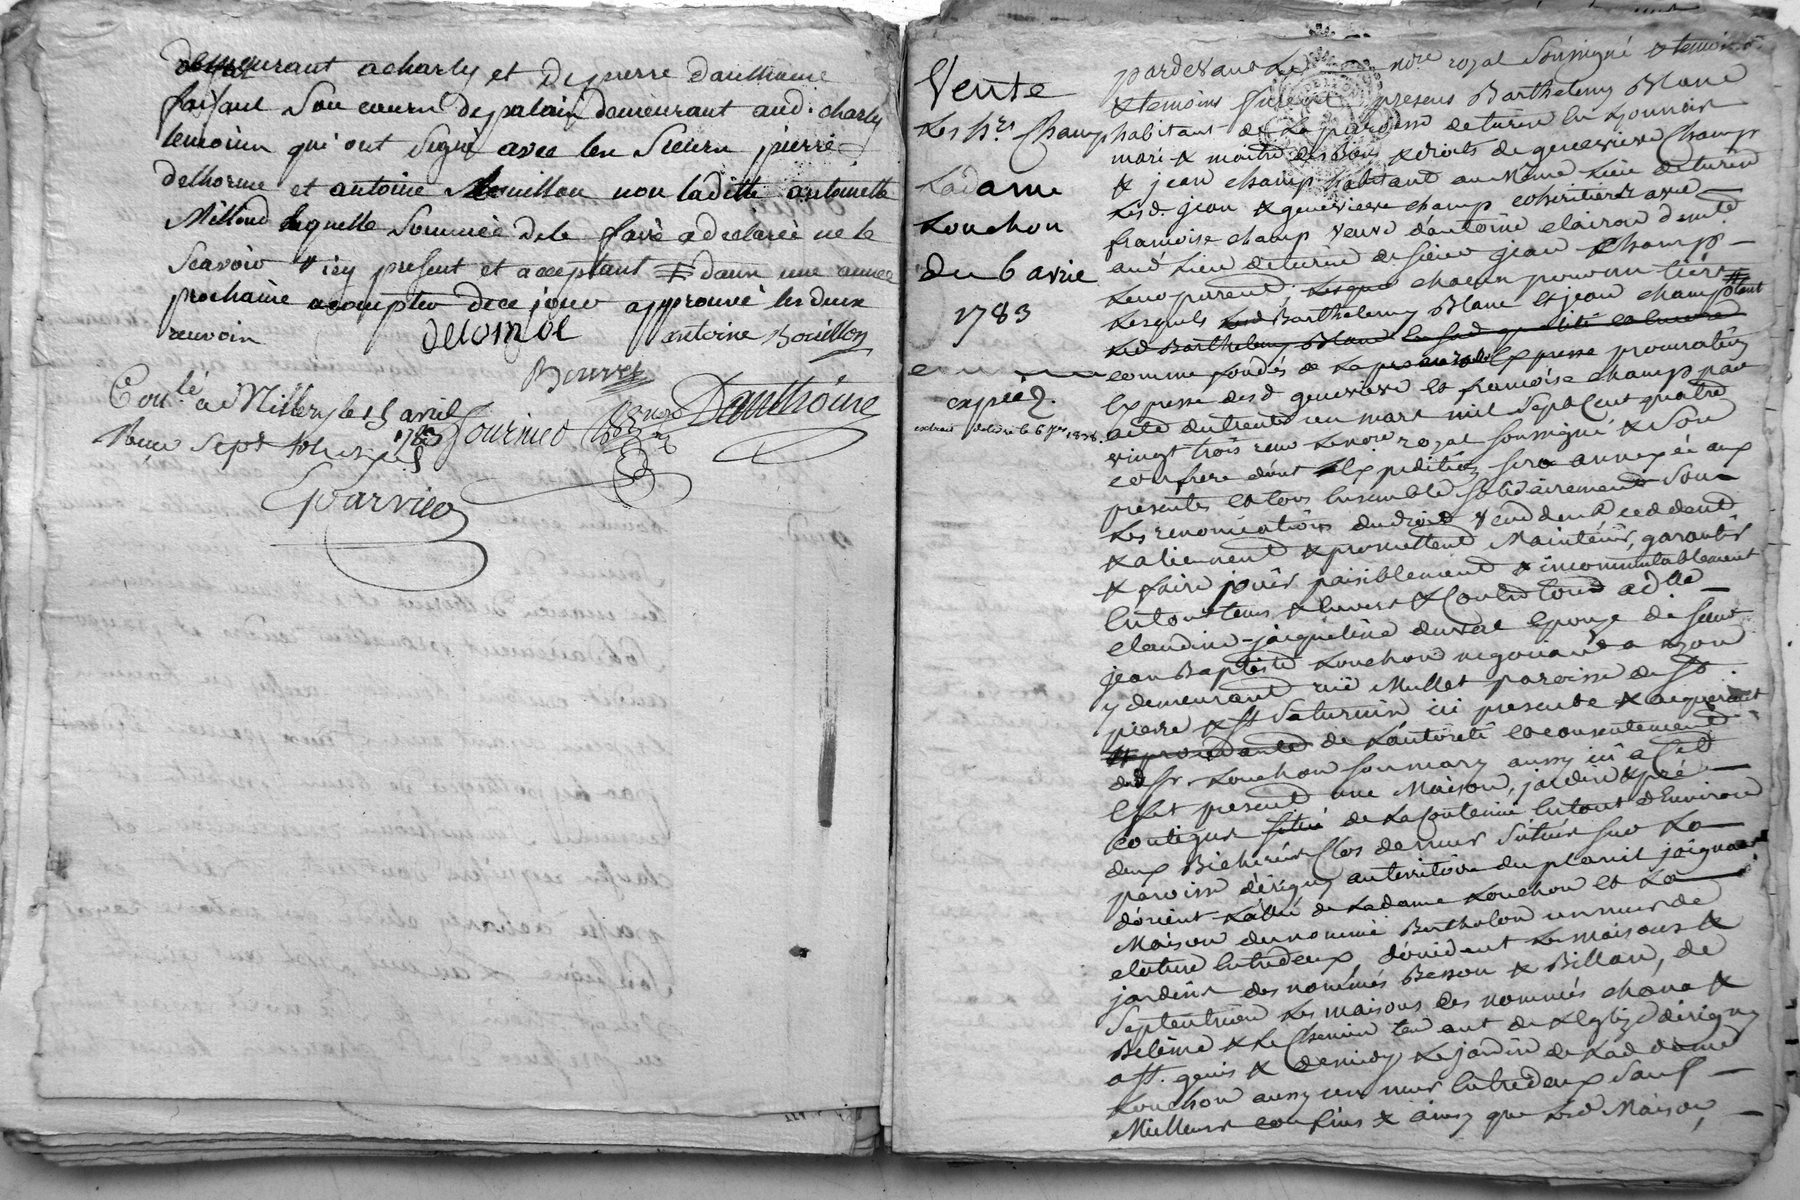 demeurant a charly et De pierre dauthoine
faisant Son cours de palais demeurant aud. charly
temoins qui ont Signé avec les Sieurs pierre
delhorme et antoine Bouillon non ladite antoinette
Millond laquelle Sommée de le faire a declarée ne le
Scavoir # icy present et acceptant # dans une année
prochaine a compter de ce jour approuvé les deux
renvoin
delorme antoine Bouillon
Bouvet
Dauthoine
Conlé a Millery le 15 avril
1783 fournier
Reçu Sept
Vente
Les hrs Champ
La dame
Louchon
du 6 avril
1783
expiée.
pardevant Le nore royal Soussigné & temoins
& temoins furent presens Barthelemy Blanc
habitant de La paroisse de turin en Lyonnois
mari & maitre des Biens & droits de genevieve Champ
& jean champ habitant au même Lieu de turin
Lesd. jean & genevieve champ coheritiers avec
francoise champ veuve d'antoine clairon demte
aud Lieu de turin de sieur jean Champ
Leur parent, chacun pour un tiers #
Lesquels Barthelemy Blanc et jean champ tant
Led Barthelemy Blanc
comme fondés de La procuration Expresse
Expresse desd genevieve et francoise champ par
acte du trente un mars mil Sept Cent quatre
vingt trois recu Le nore royal soussigné & Son
confrere dont L'Expedition sera annexée aux
presentes et tous Ensemble solidairement Sous
Les renonciations du droit vendent cedent
& alienent & promettent Maintenir, garantir
& faire jouir paisiblement & incommutablement
En tout tems & Envers & Contre tous a dlle
claudine-jacqueline duvernai Epouse de sieur
jean Baptiste Louchon negociant a Lyon
y demeurant rüe Mullet paroisse de St
pierre & St Saturnin ici presente & acquerant
& procedante de L'autorité et consentement
dud Sr Louchon son mary aussy ici a Cet
Effet present une Maison, jardin & pré
contigus situé de La Contenue En tout d'Environ
deux Bicherées Clos de murs Situés sur La
paroisse d'erigny au territoire du planit joignant
d'orient L'allée de La dame Louchon et La
Maison du nommé Bertholon un mur de
cloture Entre deux, d'occident Les maisons &
jardins des nommés Besson & Billan, de
Septentrion Les maisons des nommés chana &
Belême & Le Chemin tendant de L'eglize d'erigny
a St. genis & de midy Le jardin de Lad dame
Louchon aussy un mur Entre deux Sauf
Meilleurs confins & ainsy que Lesd Maison,